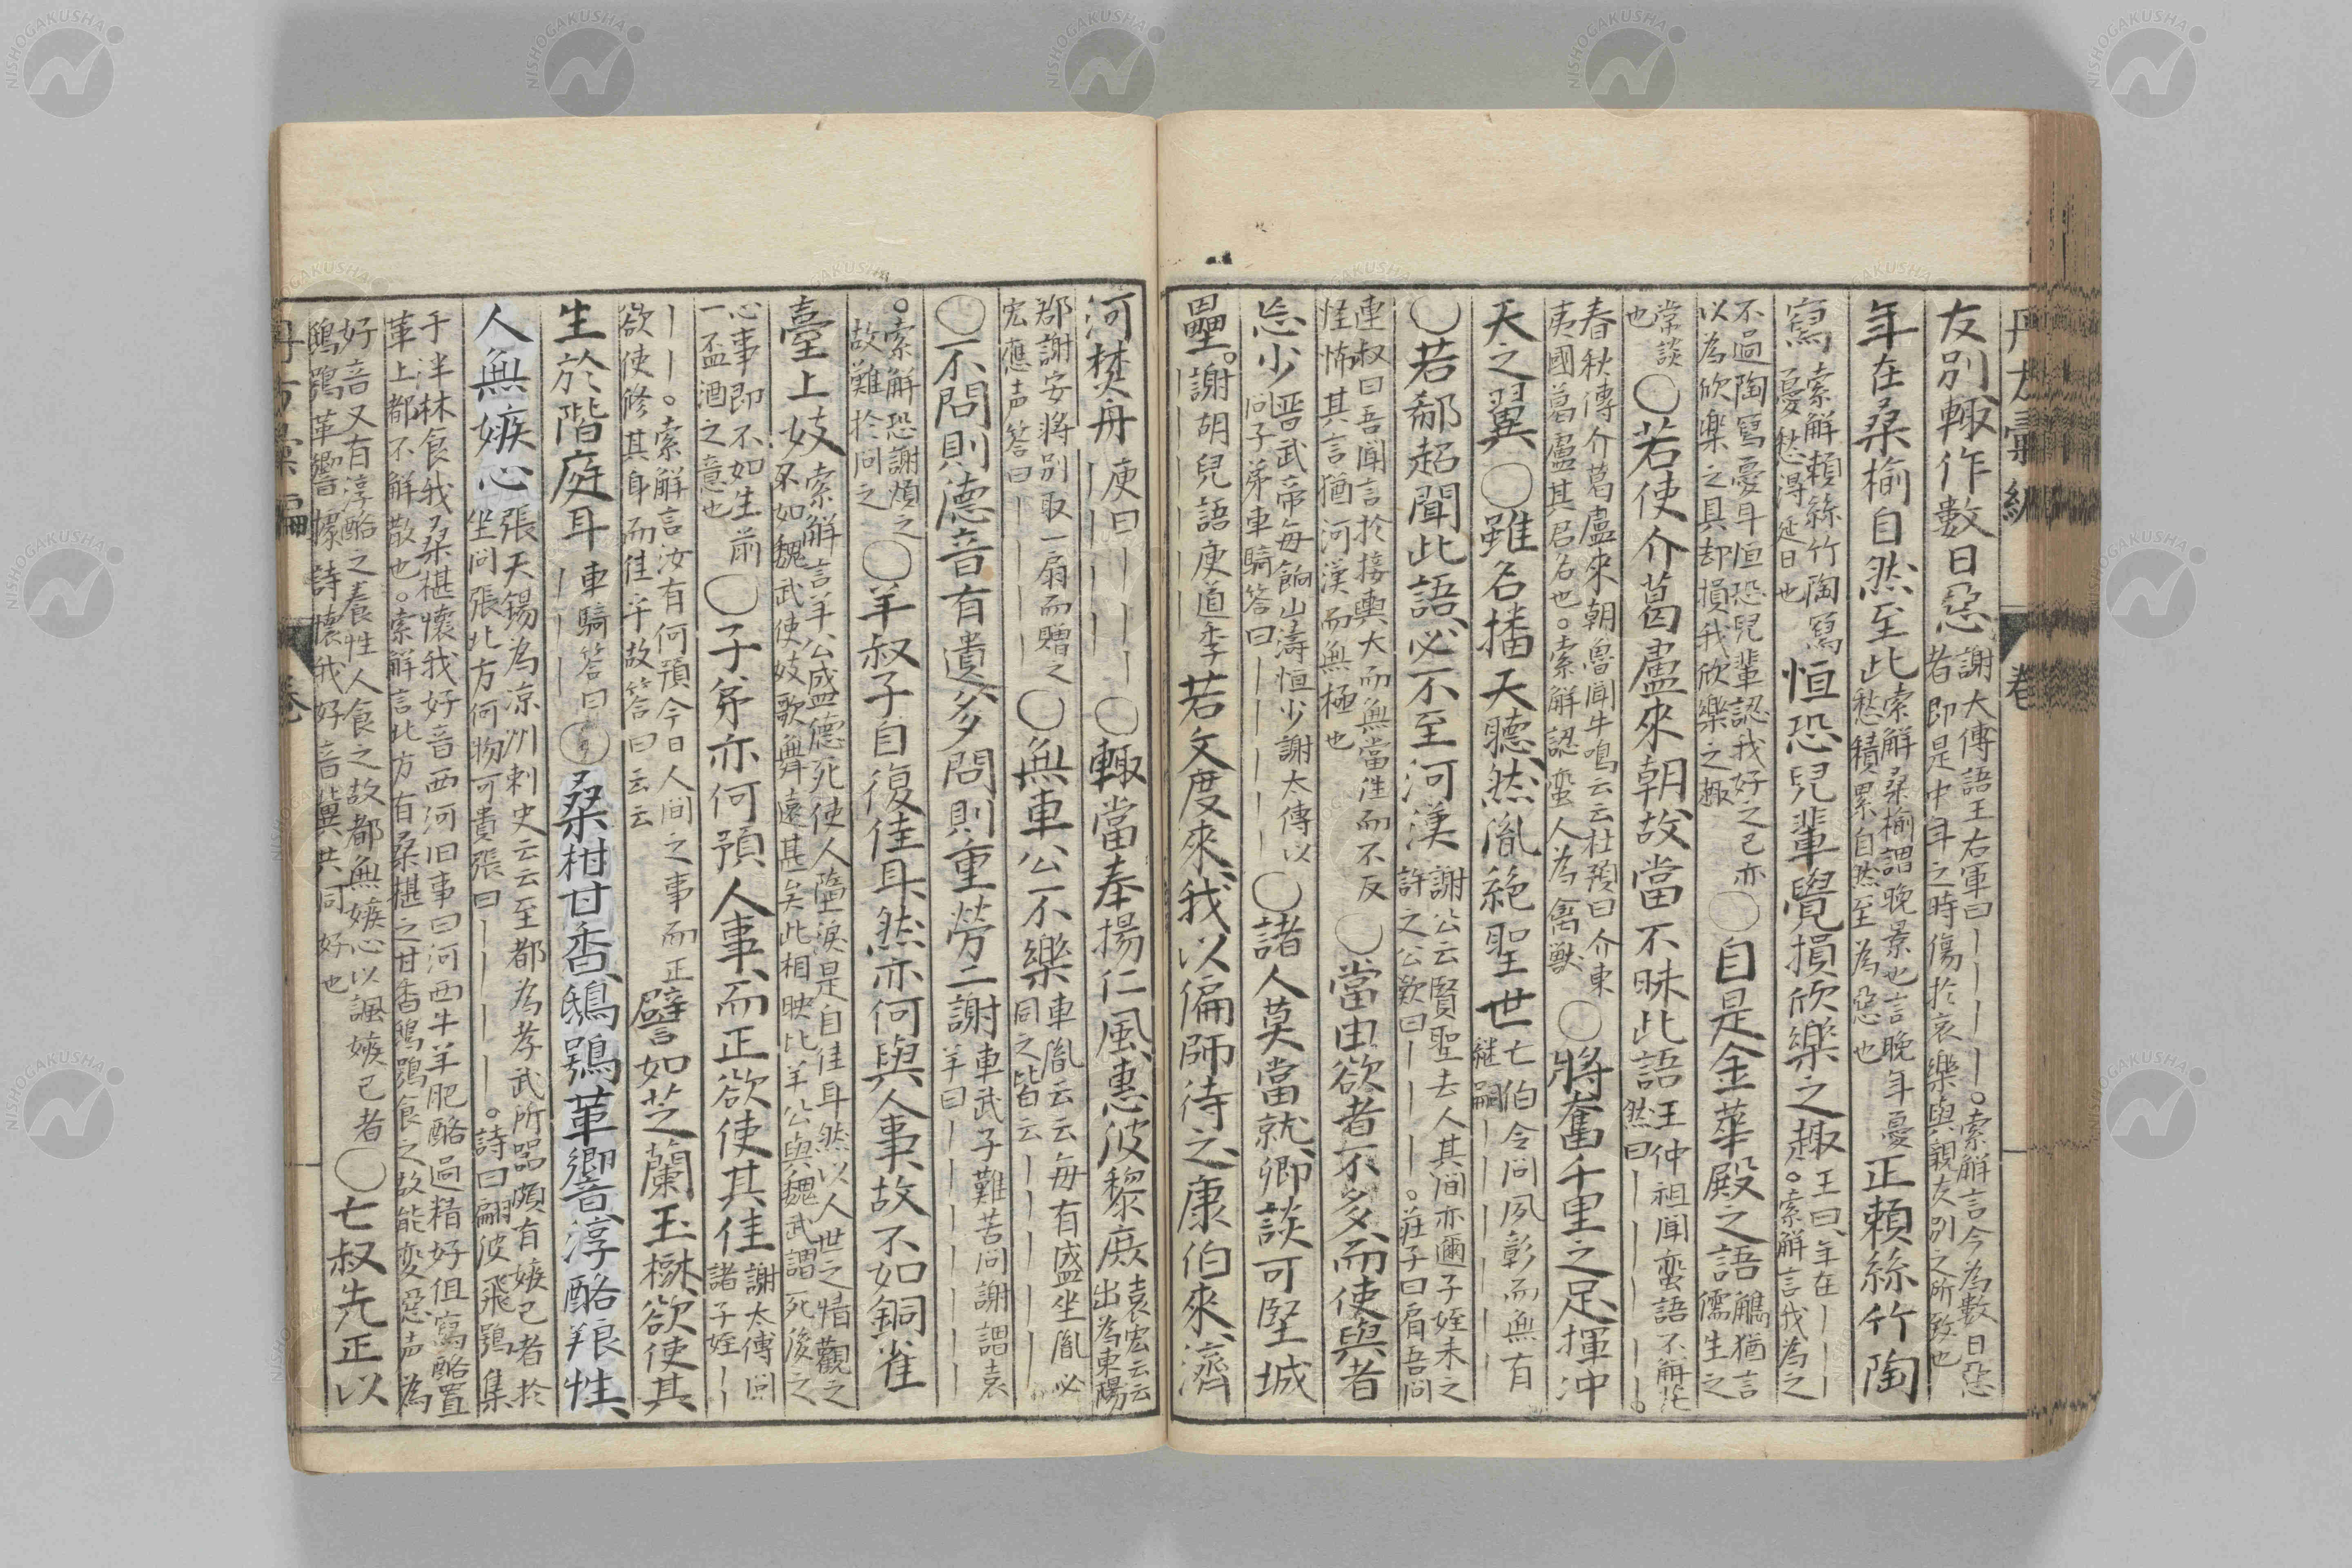 友別輒作數日惡謝大傳語王右軍曰丨丨丨丨。索解言今為數日惡
者即是中年之時傷於哀樂與親友別之所致也
年在桑榆自然至此索解桑榆謂晚景也言晚年憂
愁積累自然至為惡也正賴絲竹陶
寫索解賴絲竹陶寫
憂愁得延日也恒恐兒輩覺損欣樂之趣王曰年在丨丨
。索解言我為之
不過陶寫憂耳恒恐兒輩認我好之已亦
以為欣樂之具却損我欣樂之趣〇自是金華殿之語觴猶言
儒生之
常談
也〇若使介葛盧來朝故當不昧此語王仲祖聞蛮語不解茫
然曰丨丨丨丨。
春秋傳介葛盧來朝魯聞牛鳴云云杜預曰介東
夷國葛盧其君名也。索解認蛮人為禽獸〇將奮千里之足揮冲
天之翼〇雖名播天聽然胤絕聖世七伯令問夙彰而無有
継嗣丨丨丨丨
〇若郗超聞此語必不至河漢謝公云賢聖去人其间亦邇子姪未之
許之公歎曰丨丨丨。莊子曰肩吾問
連叔曰吾闻言於接輿大而無當往而不反
恠怖其言猶河漢而無極也〇當由欲者不多而使與者
忘少晋武帝每餉山濤恒少謝太傳以
问子弟車騎答曰丨丨丨丨〇諸人莫當就卿談可堅城
壘。謝胡兒語庾道季
丨丨丨丨若文度來我以偏師待之康伯來濟
河焚舟庾曰丨丨丨丨
丨丨丨丨〇輒當奉揚仁風惠彼黎庶袁宏云云
出為東陽
郡謝安將别取一扇而贈之
宏應声答曰丨丨丨丨〇無車公不樂車胤云云每有盛坐胤必
同之皆云丨丨丨丨
〇不問則德音有遺多問則重勞二謝車武子難苦问謝謂袁
羊曰丨丨丨丨
。索解恐謝煩之
故難於问之〇羊叔子自復佳耳然亦何與人事故不如銅雀
臺上妓索解言羊公盛德死使人墮淚是自佳耳然以人世之情觀之
不如魏武使妓歌舞遠甚矣此相映比羊公與魏武謂死後之
心事即不如生前
一盃酒之意也〇子弟亦何預人事而正欲使其佳謝太傳问
諸子姪丨丨
丨丨。索解言汝有何預今日人间之事而正
欲使修其身而佳乎故答曰云云譬如芝蘭玉樹欲使其
生於階庭耳車騎答曰
丨丨丨〇桑椹甘香鴟鴞革響淳酪養性
人無嫉心張天錫為涼州刺史云云至都為孝武所器頗有嫉己者於
坐问張北方何物可貴張曰丨丨丨丨。詩曰翩彼飛鴞集
于泮林食我桑椹懷我好音西河旧事曰河西牛羊肥酪過精好但寫酪置
革上都不解散也。索解言此方有桑椹之甘香鴟鴞食之故能変惡声為
好音又有淳酪之養性人食之故都無嫉心以諷嫉己者
鴟鴞革響據詩懷我好音糞共同好也〇七叔先正以